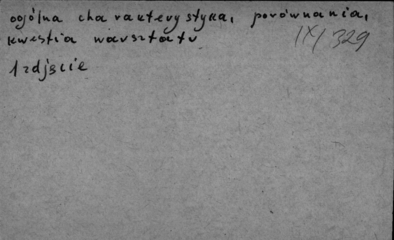 ogólna charakterystyka, porównania,
kwestia warsztatu
IX/329
1 zdjęcie